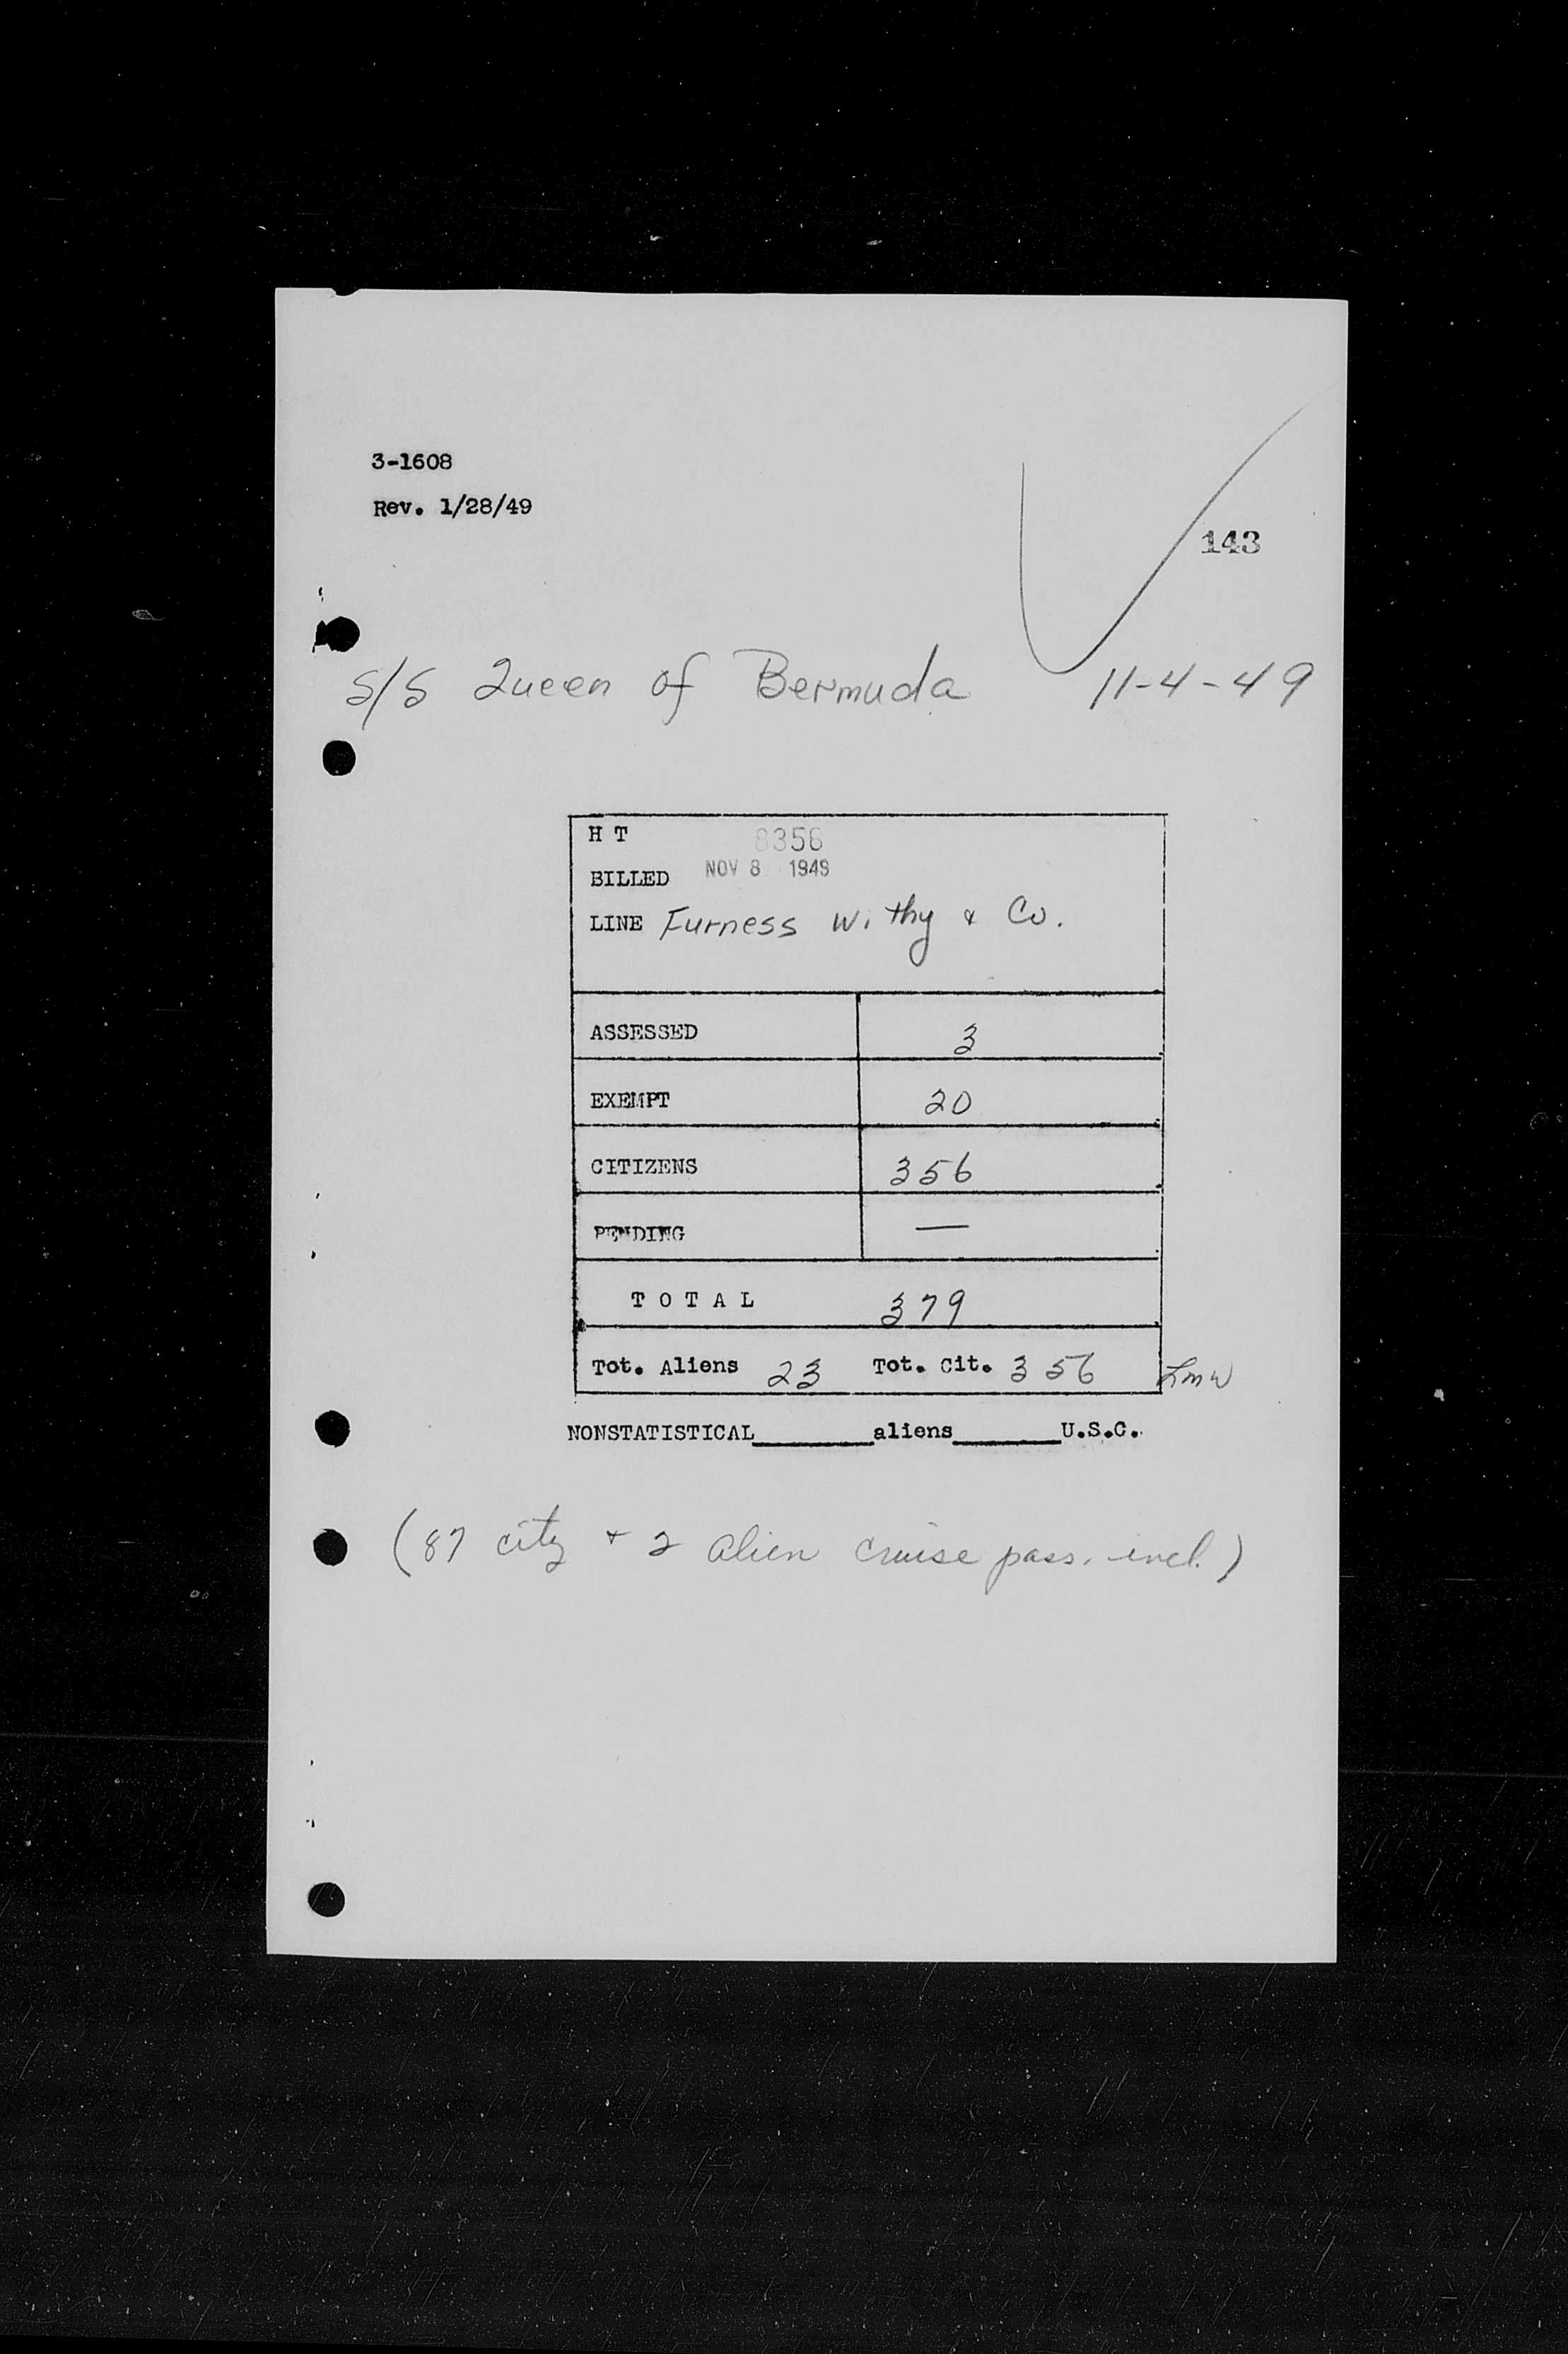 3-1608
Rev. 1/28/49
143
S/S Queen of Bermuda 11-4-49
H T 8356
BILLED NOV 8 1949
LINE Furness Withy & Co.
ASSESSED 3
EXEMPT 20
CITIZENS 356
PENDING —
TOTAL 379
Tot. Aliens 23 Tot. Cit. 356 Lmw
NONSTATISTICAL________aliens_______U.S.C.
(87 city + 2 alien cruise pass. incl.)